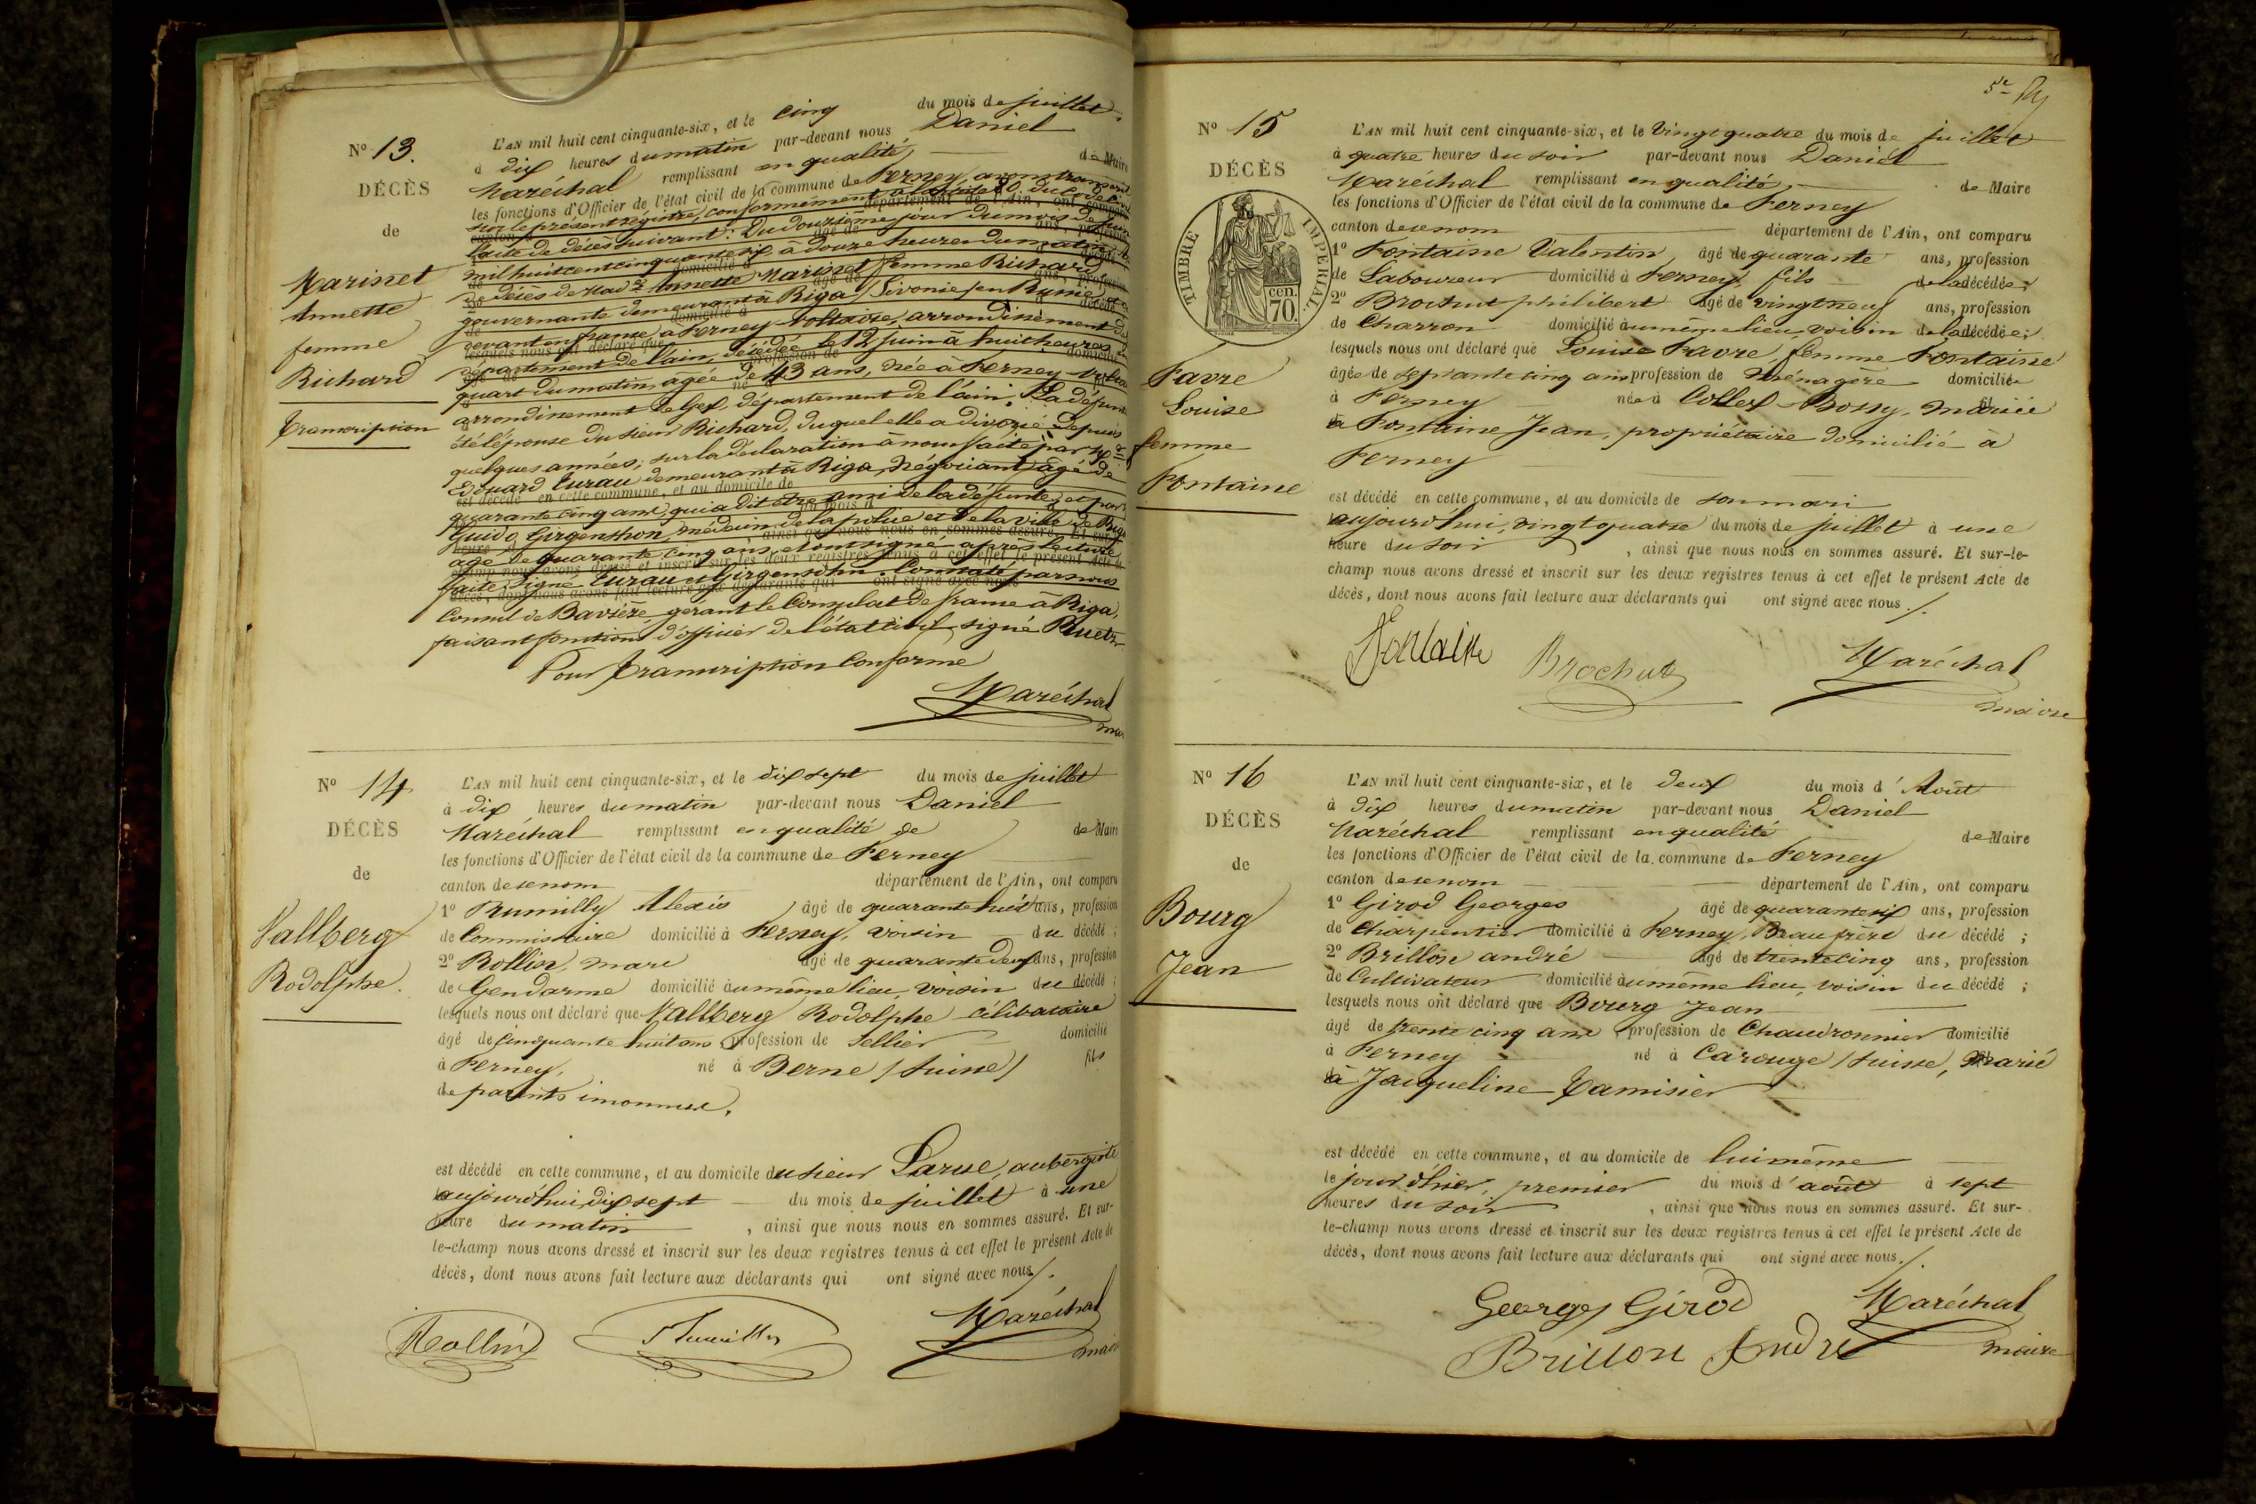 N° 13.
DÉCÈS
de
Marinet
Annette
femme
Richard
Transcription
L'AN mil huit cent cinquante-six, et le cinq du mois de juillet,
à dix heures du matin par-devant nous Daniel
Maréchal remplissant en qualité de Maire
les fonctions d'Officier de l'état civil de la commune de Ferney, avons transcrit
sur le présent registre, conformément à l'article 80 du Code
l'acte de décès suivant: Du douzième jour du mois de juin
mil huit cent cinquante six à douze heures du matin
de décès de Mad.e Annette Marinet femme Richard
gouvernante demeurant à Riga / Livonie / en Russie
devant en france à Ferney-Voltaire, arrondissement de
département de l'ain, décédée le 12 juin à huit heures
quart du matin, âgée de 43 ans, née à Ferney-
arrondissement de Gex, département de l'ain. La défunte
été l'épouse du sieur Richard, duquel elle a divorcé depuis
quelques années; sur la déclaration à nous faite par
Edouard Curau demeurant à Riga, Négociant, âgé de
quarante cinq ans, qui a dit être ami de la défunte, et par
Guido Girgensohn, médecin de la police et de la ville de Riga
âgé de quarante cinq ans, et ont signé, après lecture
faite, signé Curau et Girgensohn. Constaté par nous
Consul de Bavière, gérant le Consulat de france à Riga,
faisant fonctions d'officier de l'état civil, signé Ruetz
Pour transcription Conforme
Maréchal
N° 14
DÉCÈS
de
Vallberg
Rodolphe.
L'AN mil huit cent cinquante-six, et le dix sept du mois de juillet
à dix heures du matin par-devant nous Daniel
Maréchal remplissant en qualité de de Maire
les fonctions d'Officier de l'état civil de la commune de Ferney
canton de ce nom département de l'Ain, ont comparu
1° Rumilly Alexis âgé de quarante huit ans, profession
de Commissaire domicilié à Ferney, voisin du décédé;
2° Rollin, marc âgé de quarante deux ans, profession
de Gendarme domicilié au même lieu, voisin du décédé;
lesquels nous ont déclaré que Vallberg Rodolphe célibataire
âgé de Cinquante huit ans profession de Sellier domicilié
à Ferney, né à Berne / Suisse / fils
de parents inconnus.
est décédé en cette commune, et au domicile du sieur Larue, aubergiste
aujourd'hui, dix sept du mois de juillet à une
heure du matin, ainsi que nous nous en sommes assuré. Et sur-
le-champ nous avons dressé et inscrit sur les deux registres tenus à cet effet le présent Acte de
décès, dont nous avons fait lecture aux déclarants qui ont signé avec nous /.
Rollin Rumilly Maréchal
maire
N° 15
DÉCÈS
TIMBRE IMPÉRIAL.
cen.
70.
Favre
Louise
femme
Fontaine
L'AN mil huit cent cinquante-six, et le Vingt quatre du mois de juillet
à quatre heures du soir par-devant nous Daniel
Maréchal remplissant en qualité, de Maire
les fonctions d'Officier de l'état civil de la commune de Ferney
canton de ce nom département de l'Ain, ont comparu
1° Fontaine Valentin, âgé de quarante ans, profession
de Laboureur domicilié à Ferney, fils de la décédée;
2° Brochut philibert âgé de vingt neuf ans, profession
de Charron domicilié au même lieu, voisin de la décédée;
lesquels nous ont déclaré que Louise Favre, femme Fontaine
âgée de septante cinq ans profession de Ménagère domiciliée
à Ferney née à Collex-Bossy, mariée
à Fontaine Jean, propriétaire domicilié à
Ferney
est décédé en cette commune, et au domicile de son mari
aujourd'hui, vingt quatre du mois de juillet à une
heure du soir, ainsi que nous nous en sommes assuré. Et sur-le-
champ nous avons dressé et inscrit sur les deux registres tenus à cet effet le présent Acte de
décès, dont nous avons fait lecture aux déclarants qui ont signé avec nous /.
Fontaine Brochut Maréchal
maire
N° 16
DÉCÈS
de
Bourg
Jean
L'AN mil huit cent cinquante-six, et le deux du mois d'Août
à dix heures du matin par-devant nous Daniel
Maréchal remplissant en qualité de Maire
les fonctions d'Officier de l'état civil de la commune de Ferney
canton de ce nom département de l'Ain, ont comparu
1° Girod Georges âgé de quarante six ans, profession
de Charpentier domicilié à Ferney, Beau frère du décédé;
2° Brillon andré âgé de trente cinq ans, profession
de Cultivateur domicilié au même lieu, voisin du décédé;
lesquels nous ont déclaré que Bourg Jean
âgé de trente cinq ans profession de Chaudronnier domicilié
à Ferney né à Carouge / Suisse, Marié
à Jacqueline Tamisier
est décédé en cette commune, et au domicile de lui même
le jour d'hier, premier du mois d'août à sept
heures du soir, ainsi que nous nous en sommes assuré. Et sur-
le-champ nous avons dressé et inscrit sur les deux registres tenus à cet effet le présent Acte de
décès, dont nous avons fait lecture aux déclarants qui ont signé avec nous /.
Georges Girod Maréchal
Brillon André maire